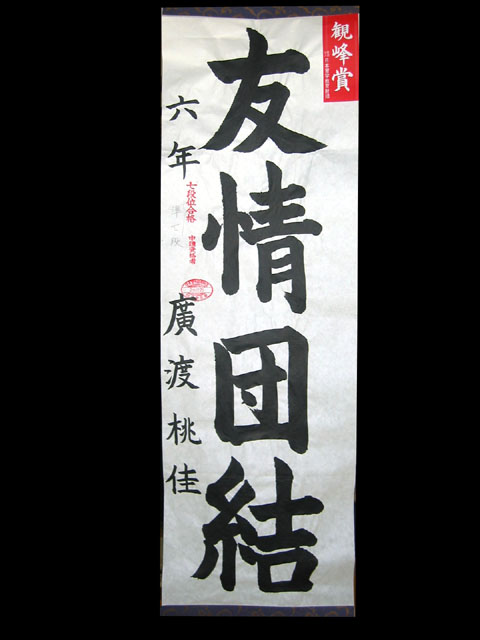 観峰賞
友情団結
六年 廣渡桃佳
七段位合格
準七段